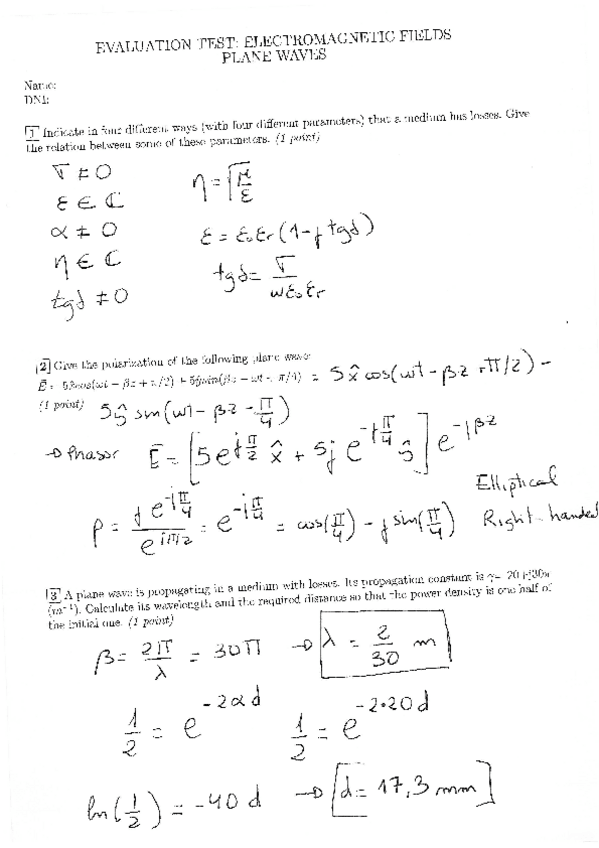 EVALUATION TEST: ELECTROMAGNETIC FIELDS
PLANE WAVES
Name:
DNI:
1 Indicate in four different ways (with four different parameters) that a medium has losses. Give
the relation between some of these parameters. (1 point)
σ ≠ 0
ε ∈ ℂ
α ≠ 0
η ∈ ℂ
tgδ ≠ 0
η = √(μ/ε)
ε = ε₀εr(1-j tgδ)
tgδ = σ/(ωε₀εr)
2 Give the polarization of the following plane wave:
= 5x̂cos(ωt - βz + π/2) -
(1 point) 5ŷ sin(ωt - βz - π/4)
→ Phasor E̅ = [5e^{jπ/2} x̂ + 5j e^{-jπ/4} ŷ] e^{-jβz}
ρ = j e^{-jπ/4} / e^{jπ/2} = e^{-jπ/4} = cos(π/4) - j sin(π/4)
Elliptical
Right-handed
3 A plane wave is propagating in a medium with losses. Its propagation constant is γ= 20+j30π
(m⁻¹). Calculate its wavelength and the required distance so that the power density is one half of
the initial one. (1 point)
β = 2π/λ = 30π → λ = 2/30 m
1/2 = e^{-2αd} 1/2 = e^{-2·20d}
ln(1/2) = -40 d → d = 17,3 mm